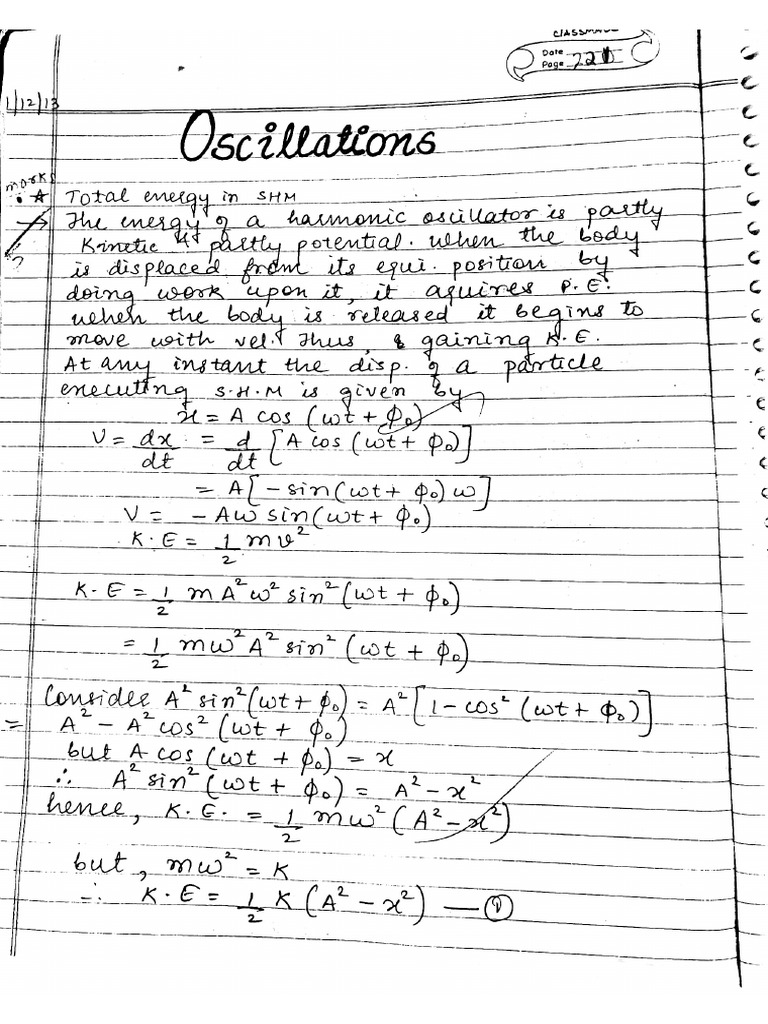 CLASSMATE
Date
Page 221
1/12/13
Oscillations
marks
Total energy in SHM
→ The energy of a harmonic oscillator is partly
Kinetic & partly potential. when the body
is displaced from its equi. position by
doing work upon it, it aquires P.E.
when the body is released it begins to
move with vel. Thus, gaining K.E.
At any instant the disp. of a particle
executing S.H.M is given by
x = A cos (ωt + ϕ₀)
V = dx/dt = d/dt [A cos (ωt + ϕ₀)]
= A[-sin(ωt + ϕ₀) ω]
V = -Aω sin(ωt + ϕ₀)
K.E = 1/2 mv²
K.E = 1/2 mA²ω² sin²(ωt + ϕ₀)
= 1/2 mω²A² sin² (ωt + ϕ₀)
Consider A² sin²(ωt + ϕ₀) = A² [1 - cos² (ωt + ϕ₀)]
= A² - A² cos² (ωt + ϕ₀)
but A cos (ωt + ϕ₀) = x
∴ A² sin² (ωt + ϕ₀) = A² - x²
hence, K.E. = 1/2 mω² (A² - x²)
but, mω² = K
∴ K.E = 1/2 K (A² - x²) — ①